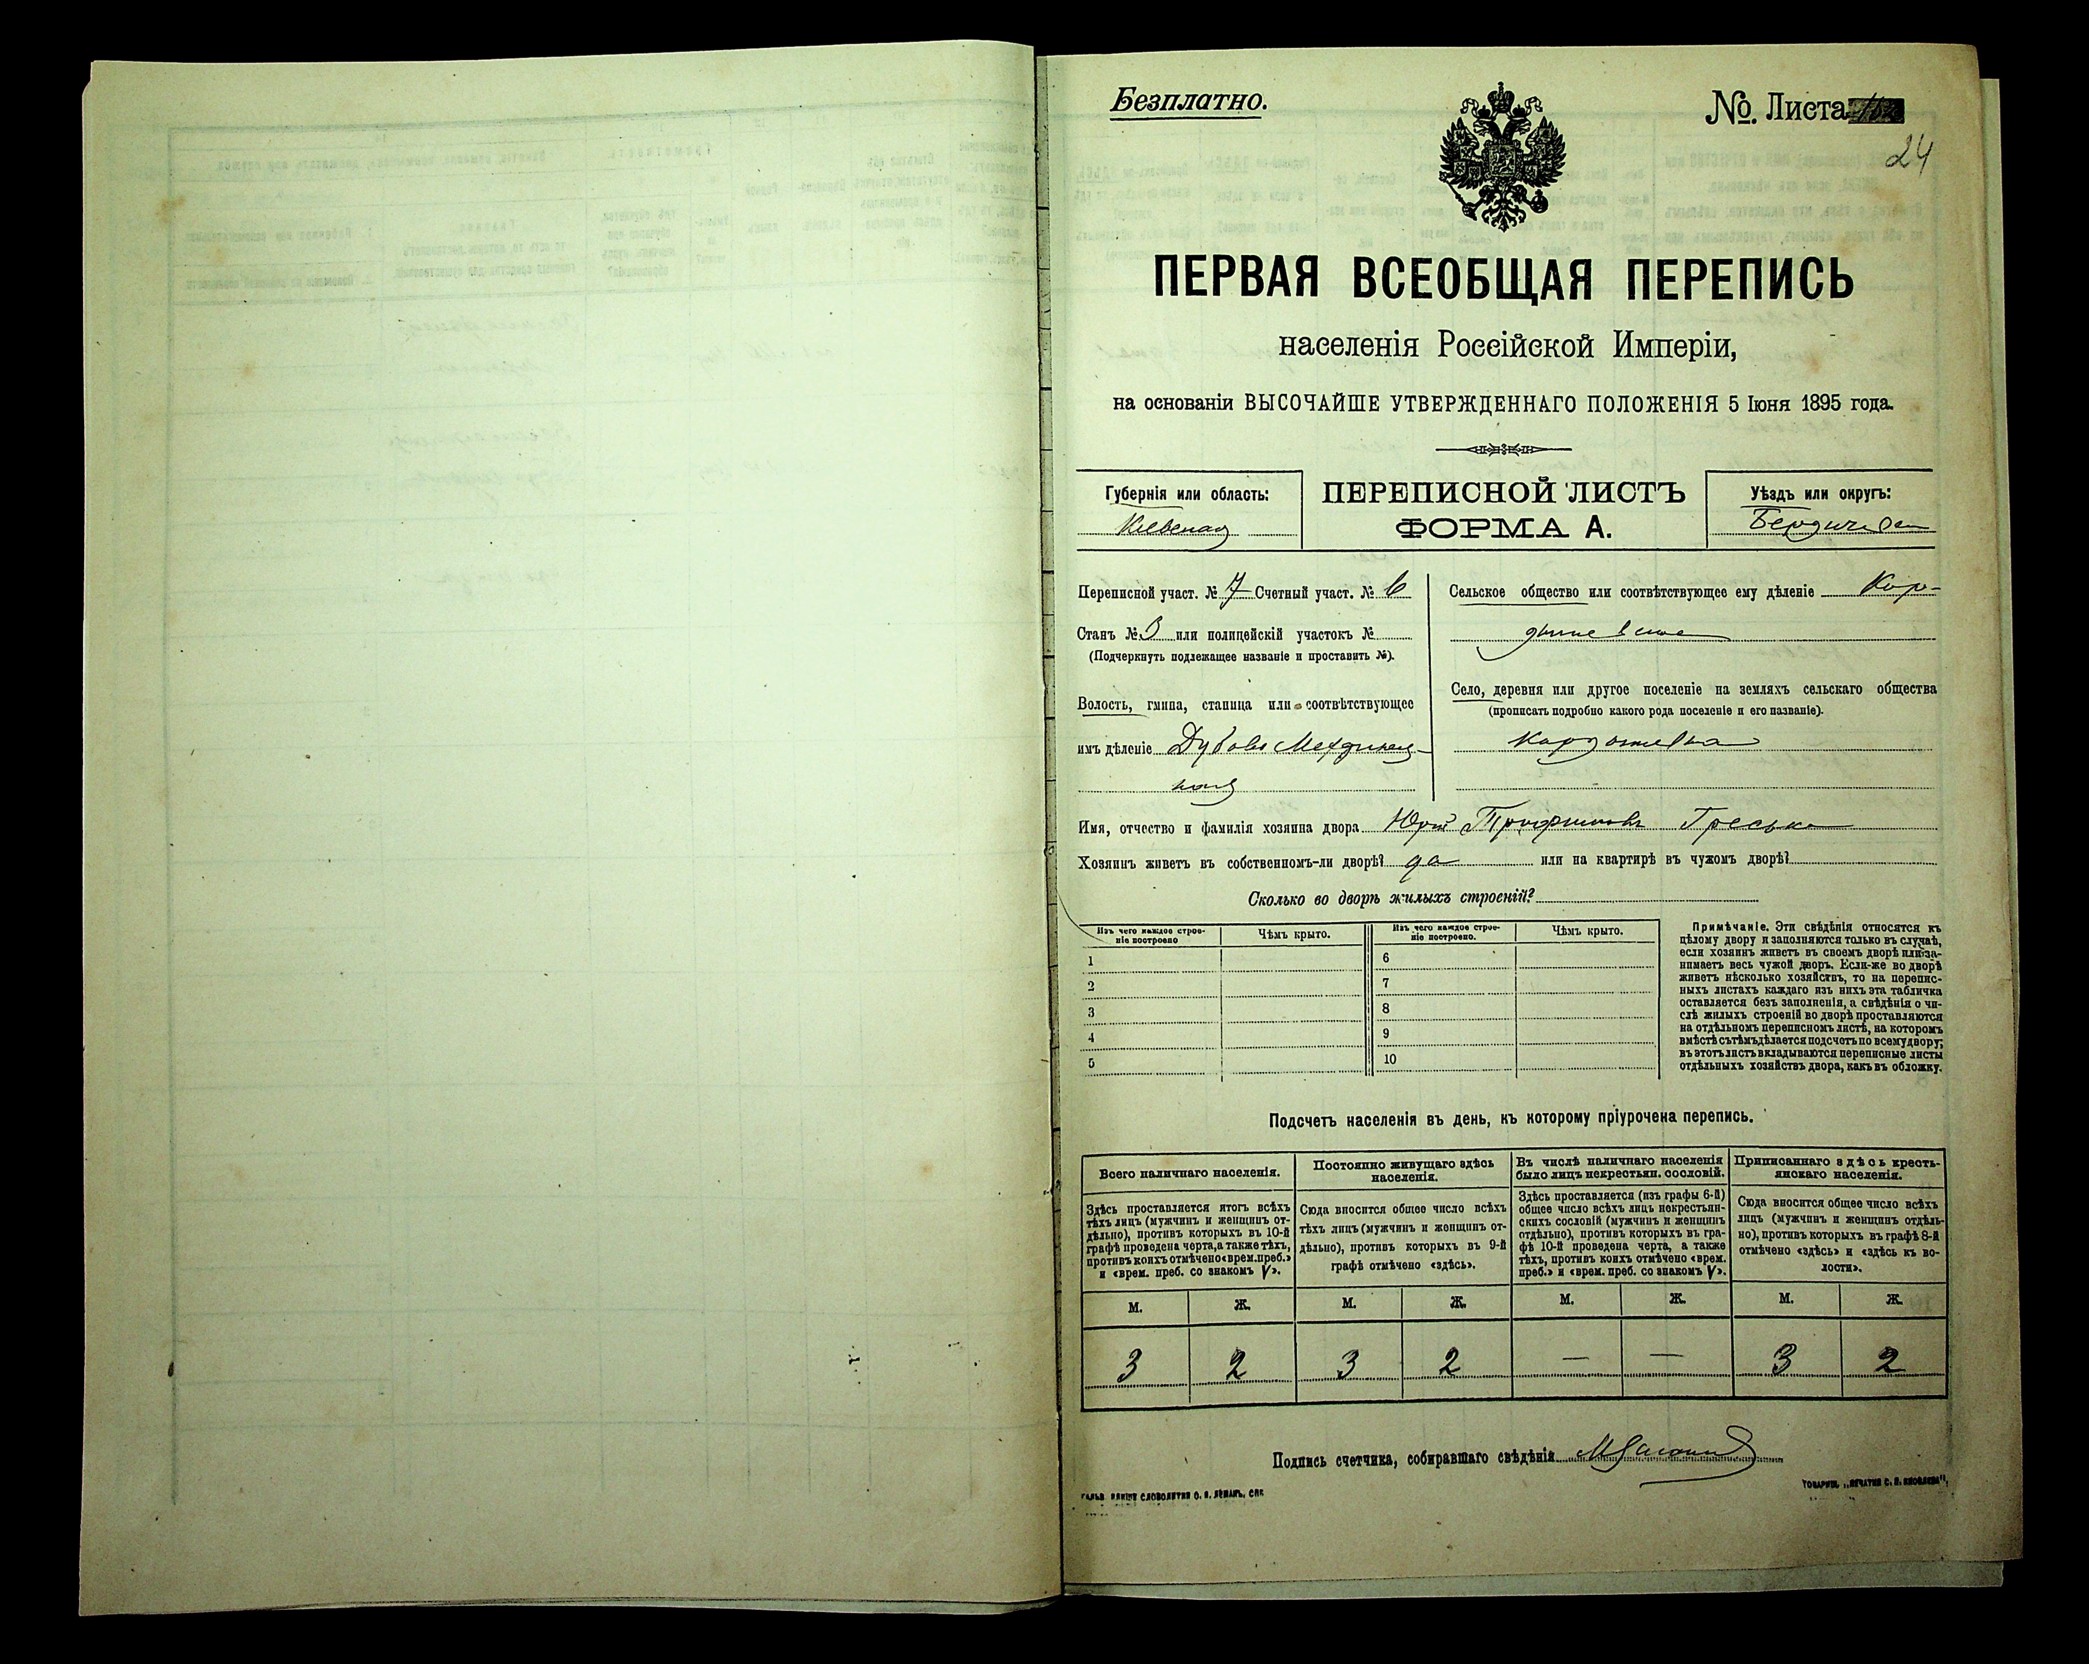 Безплатно.
№. Листа
24
ПЕРВАЯ ВСЕОБЩАЯ ПЕРЕПИСЬ
населенія Россійской Имперіи,
на основаніи ВЫСОЧАЙШЕ УТВЕРЖДЕННАГО ПОЛОЖЕНІЯ 5 Іюня 1895 года.
Губернія или область:
Кіевская
ПЕРЕПИСНОЙ ЛИСТЪ
ФОРМА А.
Уѣздъ или округъ:
Бердичевскій
Переписной участ. № 7 Счетный участ. № 6
Станъ № 3 или полицейскій участокъ №
(Подчеркнуть подлежащее названіе и проставить №).
Волость, гмина, станица или соотвѣтствующее
имъ дѣленіе Дубово Махаринец-
кая
Сельское общество или соотвѣтствующее ему дѣленіе Кор-
дышевское
Село, деревня или другое поселеніе на земляхъ сельскаго общества
(прописать подробно какого рода поселеніе и его названіе).
Кордышевка
Имя, отчество и фамилія хозяина двора Юрій Трофимовъ Гресько
Хозяинъ живетъ въ собственномъ-ли дворѣ? да или на квартирѣ въ чужомъ дворѣ?
Сколько во дворѣ жилыхъ строеній?
Изъ чего каждое строе-
ніе построено
Чѣмъ крыто.
Изъ чего каждое строе-
ніе построено.
Чѣмъ крыто.
1
2
3
4
5
6
7
8
9
10
Примѣчаніе. Эти свѣдѣнія относятся къ
цѣлому двору и заполняются только въ случаѣ,
если хозяинъ живетъ въ своемъ дворѣ или за-
нимаетъ весь чужой дворъ. Если-же во дворѣ
живетъ нѣсколько хозяйствъ, то на перепис-
ныхъ листахъ каждаго изъ нихъ эта табличка
оставляется безъ заполненія, а свѣдѣнія о чи-
слѣ жилыхъ строеній во дворѣ проставляются
на отдѣльномъ переписномъ листѣ, на которомъ
вмѣстѣ съ тѣмъ дѣлается подсчетъ по всему двору;
въ этотъ листъ вкладываются переписные листы
отдѣльныхъ хозяйствъ двора, какъ въ обложку.
Подсчетъ населенія въ день, къ которому пріурочена перепись.
Всего наличнаго населенія.
Здѣсь проставляется итогъ всѣхъ
тѣхъ лицъ (мужчинъ и женщинъ от-
дѣльно), противъ которыхъ въ 10-й
графѣ проведена черта, а также тѣхъ,
противъ коихъ отмѣчено «врем. преб.»
и «врем. преб. со знакомъ V».
Постоянно живущаго здѣсь
населенія.
Сюда вносится общее число всѣхъ
тѣхъ лицъ (мужчинъ и женщинъ от-
дѣльно), противъ которыхъ въ 9-й
графѣ отмѣчено «здѣсь».
Въ числѣ наличнаго населенія
было лицъ некрестьян. сословій.
Здѣсь проставляется (изъ графы 6-й)
общее число всѣхъ лицъ некрестьян-
скихъ сословій (мужчинъ и женщинъ
отдѣльно), противъ которыхъ въ гра-
фѣ 10-й проведена черта, а также
тѣхъ, противъ коихъ отмѣчено «врем.
преб.» и «врем. преб. со знакомъ V».
Приписаннаго здѣсь кресть-
янскаго населенія.
Сюда вносится общее число всѣхъ
лицъ (мужчинъ и женщинъ отдѣль-
но), противъ которыхъ въ графѣ 8-й
отмѣчено «здѣсь» и «здѣсь къ во-
лости».
М. Ж. М. Ж. М. Ж. М. Ж.
3 2 3 2 — — 3 2
Подпись счетчика, собиравшаго свѣдѣнія
ГАЛЬВ. КЛИШЕ СЛОВОЛИТНИ О. И. ЛЕМАНЪ, СПБ
ТОВАРИЩ. „ПЕЧАТНИ С. П. ЯКОВЛЕВА“,